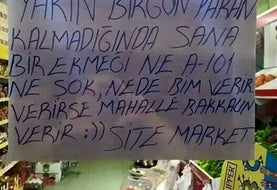 YARIN BİRGÜN PARAN
KALMADIĞINDA SANA
BİR EKMEĞİ NE A-101
NE ŞOK, NEDE BİM VERİR
VERİRSE MAHALLE BAKKALIN
VERİR :)) SİTE MARKET